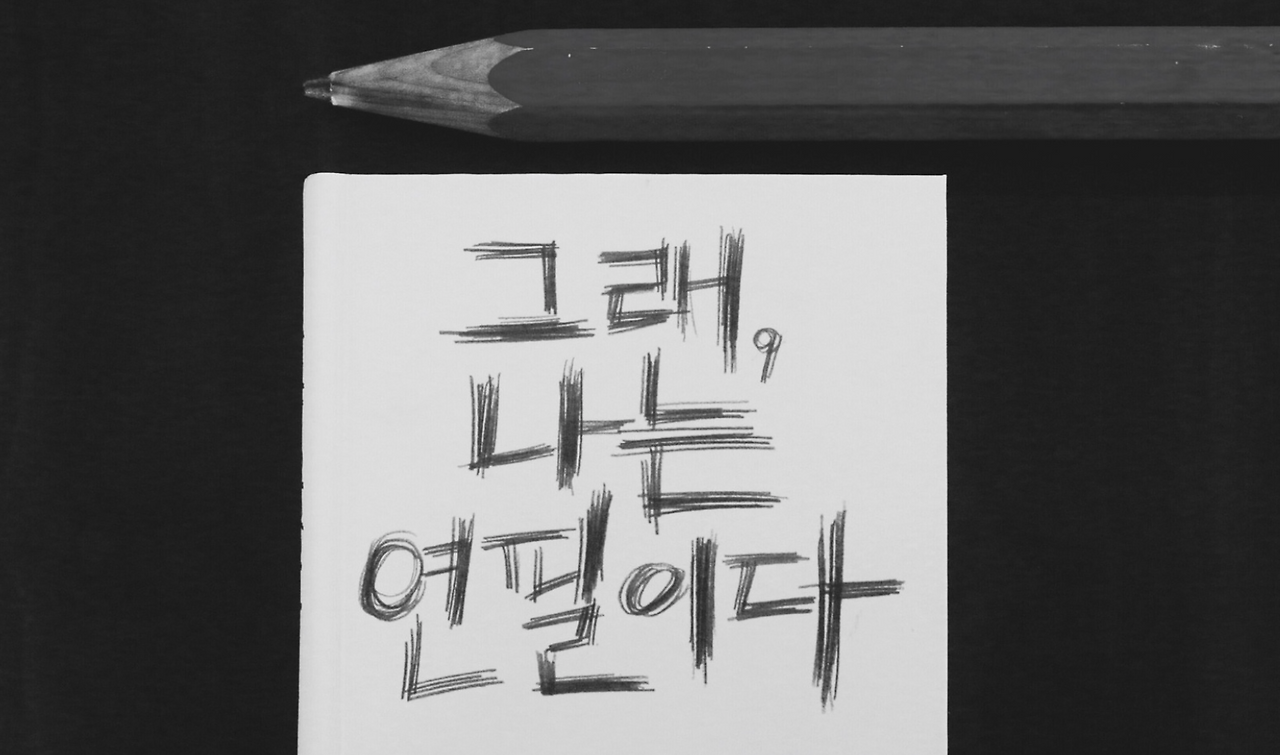 그래,
나는
연필이다